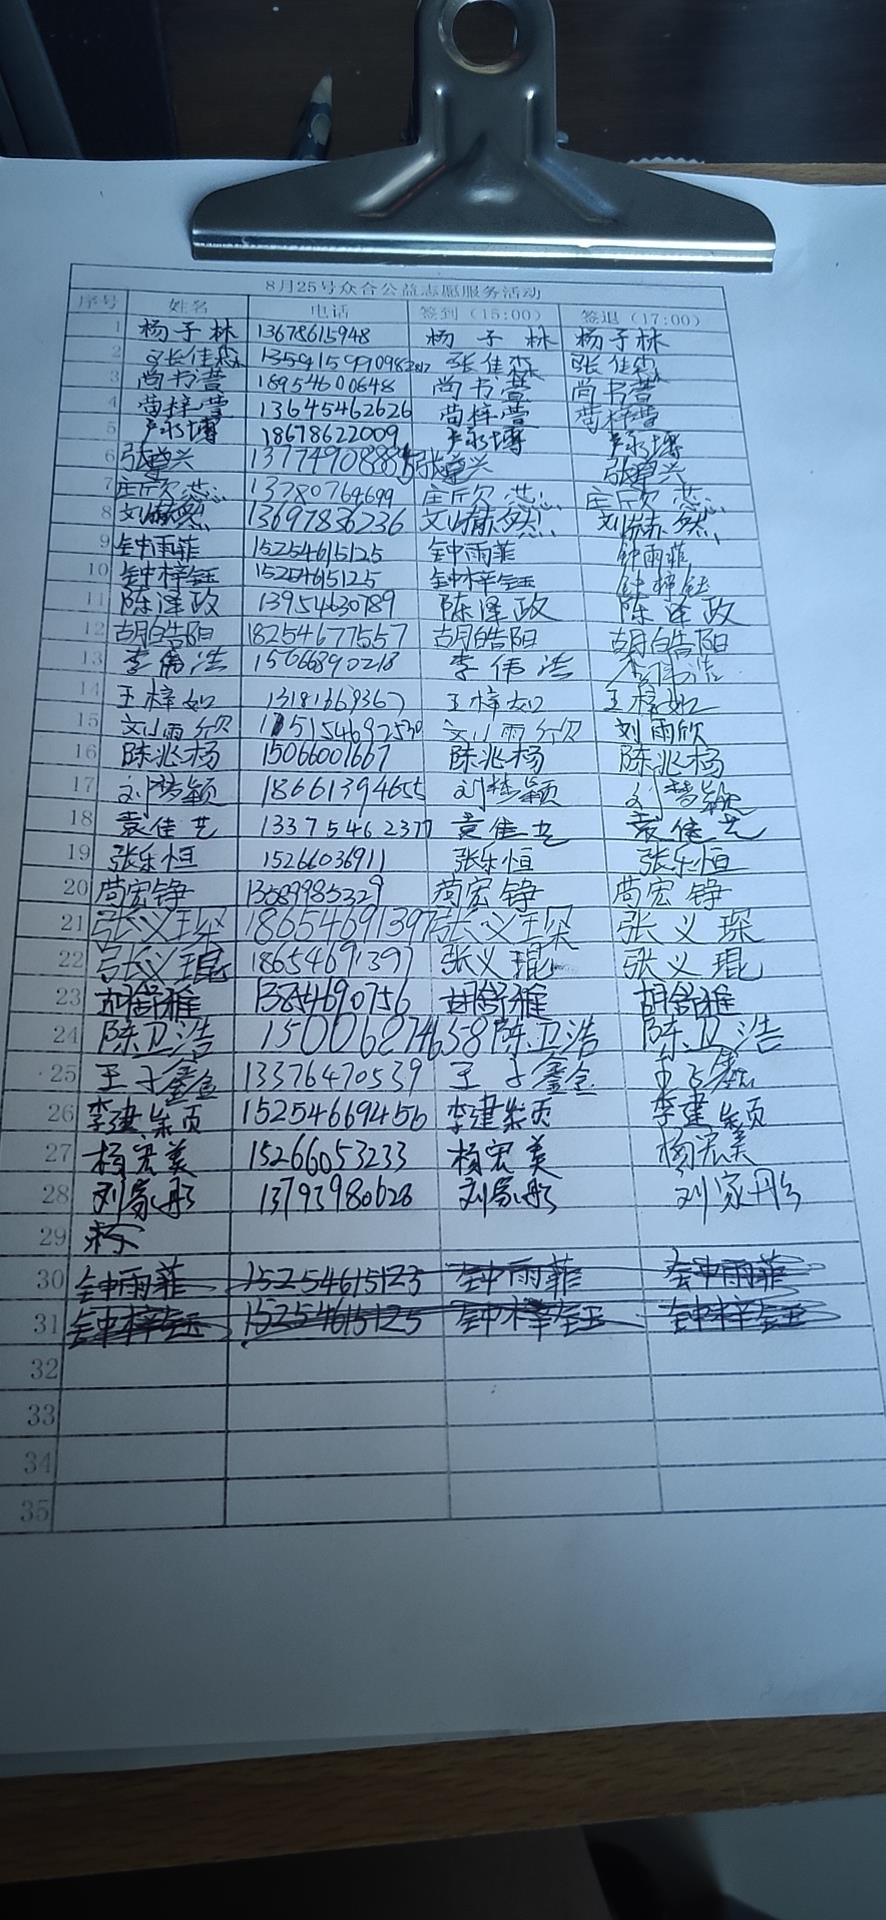 8月25号众合公益志愿服务活动
序号 姓名 电话 签到（15:00） 签退（17:00）
1 杨子林 13678615948 杨子林 杨子林
2 张佳 张佳 张佳
3 尚书萱 18954600648 尚书萱 尚书萱
4 苘梓萱 13645462626 苘梓萱 苘梓萱
5 卢永博 18678622009 卢永博 卢永博
6 张尊兴 张尊兴 张尊兴
7 庄欣蕊 13780764699 庄欣蕊 庄欣蕊
8 刘赫然 13697836236 刘赫然 刘赫然
9 钟雨菲 15254615125 钟雨菲 钟雨菲
10 钟梓钰 15254615125 钟梓钰 钟梓钰
11 陈泽政 13954630789 陈泽政 陈泽政
12 胡皓阳 18254677557 胡皓阳 胡皓阳
13 李伟浩 15066890218 李伟浩 李伟浩
14 王梓如 13181869367 王梓如 王梓如
15 刘雨欣 刘雨欣 刘雨欣
16 陈兆杨 15066001667 陈兆杨 陈兆杨
17 刘梦颖 18661394655 刘梦颖 刘梦颖
18 袁佳艺 13375462377 袁佳艺 袁佳艺
19 张乐恒 15266036911 张乐恒 张乐恒
20 苘宏铮 13589985329 苘宏铮 苘宏铮
21 张义琛 18654691397 张义琛 张义琛
22 张义琨 18654691397 张义琨 张义琨
23 胡舒雅 13854690756 胡舒雅 胡舒雅
24 陈卫浩 15006874658 陈卫浩 陈卫浩
25 王子鑫 13376470539 王子鑫 王子鑫
26 李建柴页 15254669456 李建柴页 李建柴页
27 杨宏美 15266053233 杨宏美 杨宏美
28 刘家彤 13793980628 刘家彤 刘家彤
29
30 钟雨菲 15254615123 钟雨菲 钟雨菲
31 钟梓钰 15254615125 钟梓钰 钟梓钰
32
33
34
35